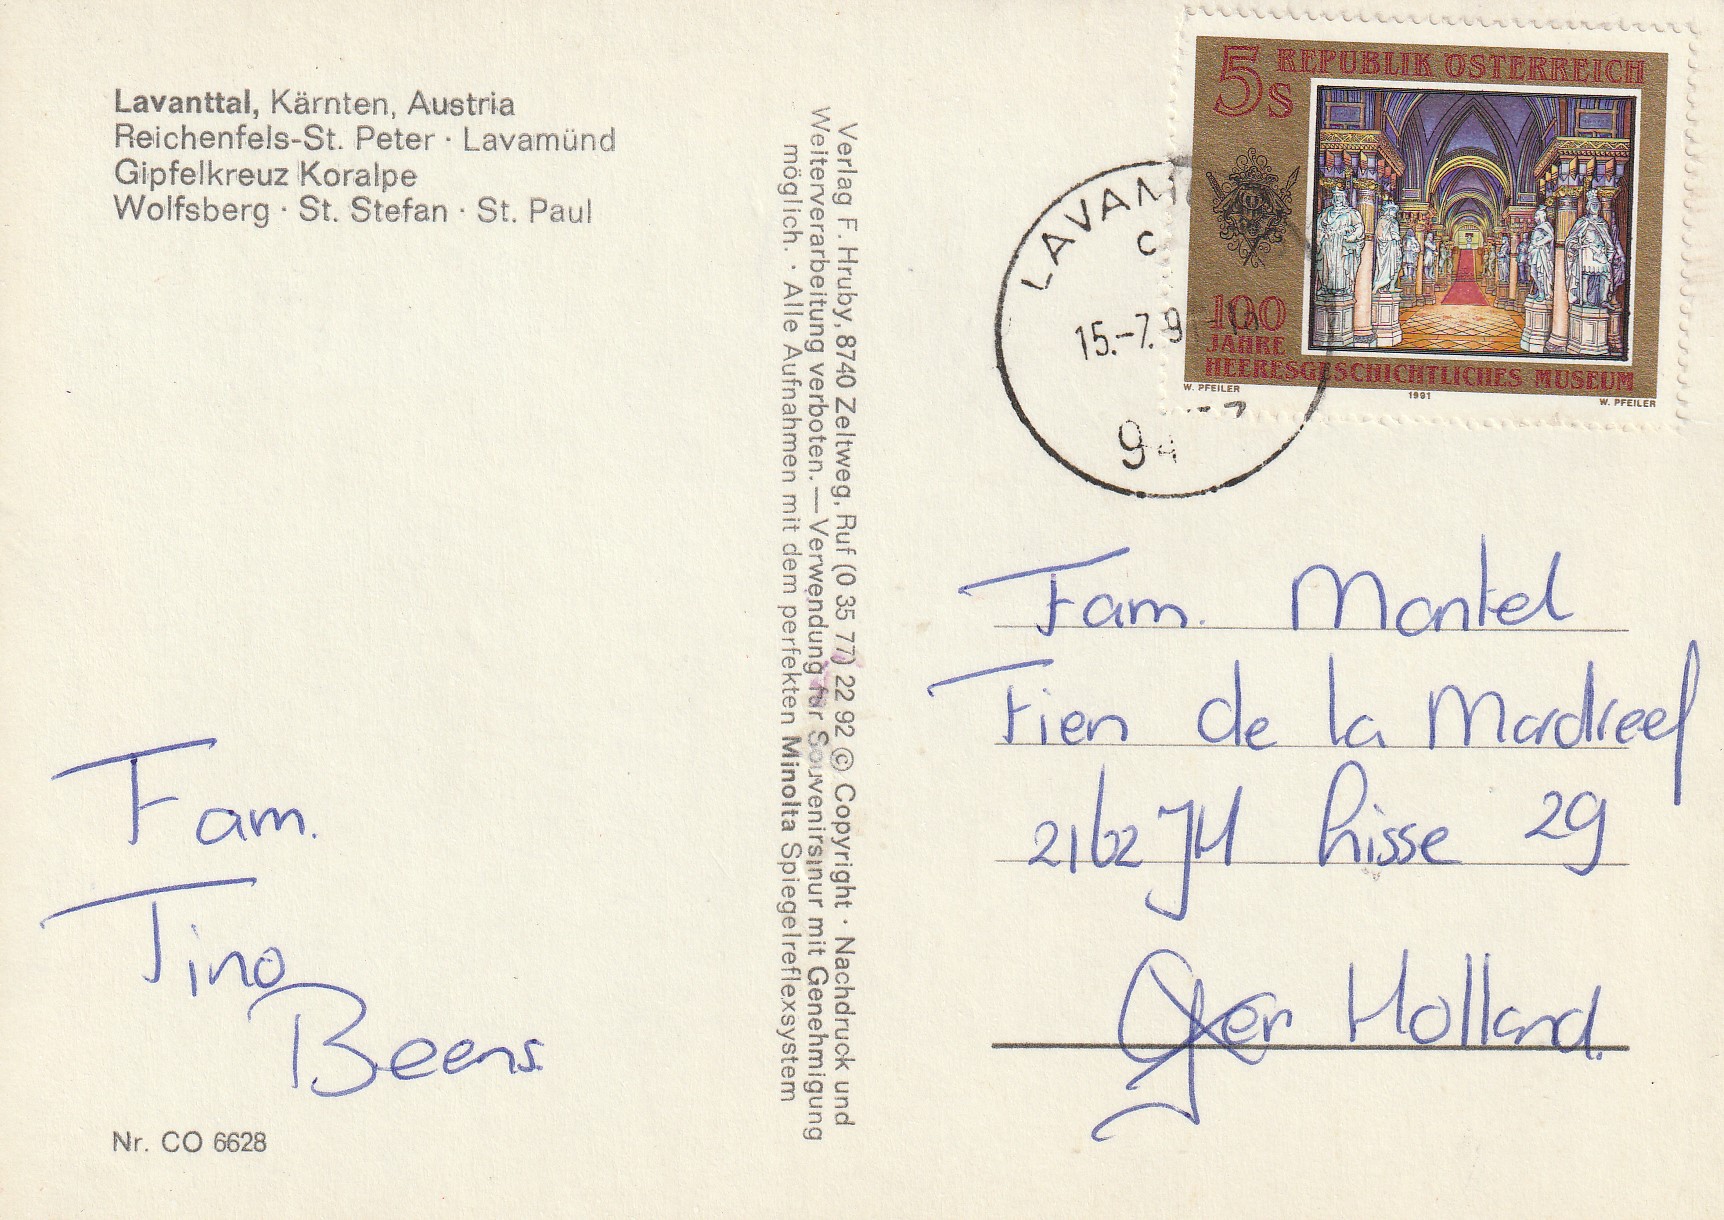 Lavanttal, Kärnten, Austria
Reichenfels-St. Peter · Lavamünd
Gipfelkreuz Koralpe
Wolfsberg · St. Stefan · St. Paul
Fam.
Tino
Beens
Nr. CO 6628
Verlag F. Hruby, 8740 Zeltweg, Ruf (0 35 77) 22 92 © Copyright · Nachdruck und
Weiterverarbeitung verboten. — Verwendung für Souvenirs nur mit Genehmigung
möglich. · Alle Aufnahmen mit dem perfekten Minolta Spiegelreflexsystem
5s REPUBLIK ÖSTERREICH
100
JAHRE
HEERESGESCHICHTLICHES MUSEUM
W. PFEILER 1991 W. PFEILER
15.-7.9
94
Fam. Montel
Fien de la Mardreef
2162 JH Lisse 29
Holland.